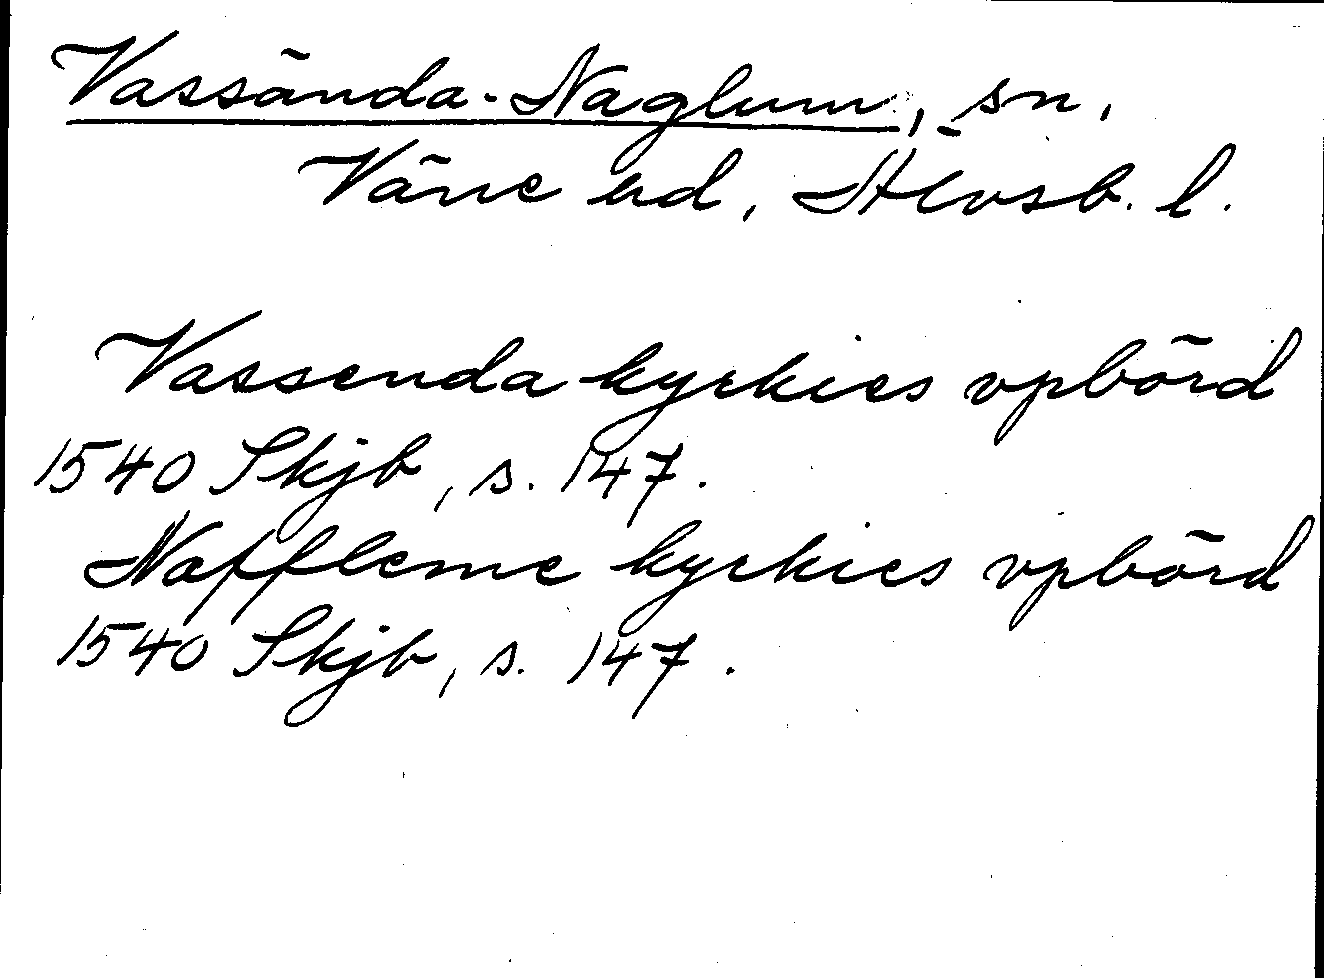 Vassända-Naglum, sn,
Väne hd, Älvsb. l.
Vassenda kyrkies vpbörd
1540 Skjb, s. 147.
Naffleme kyrkies vpbörd
1540 Skjb, s. 147.